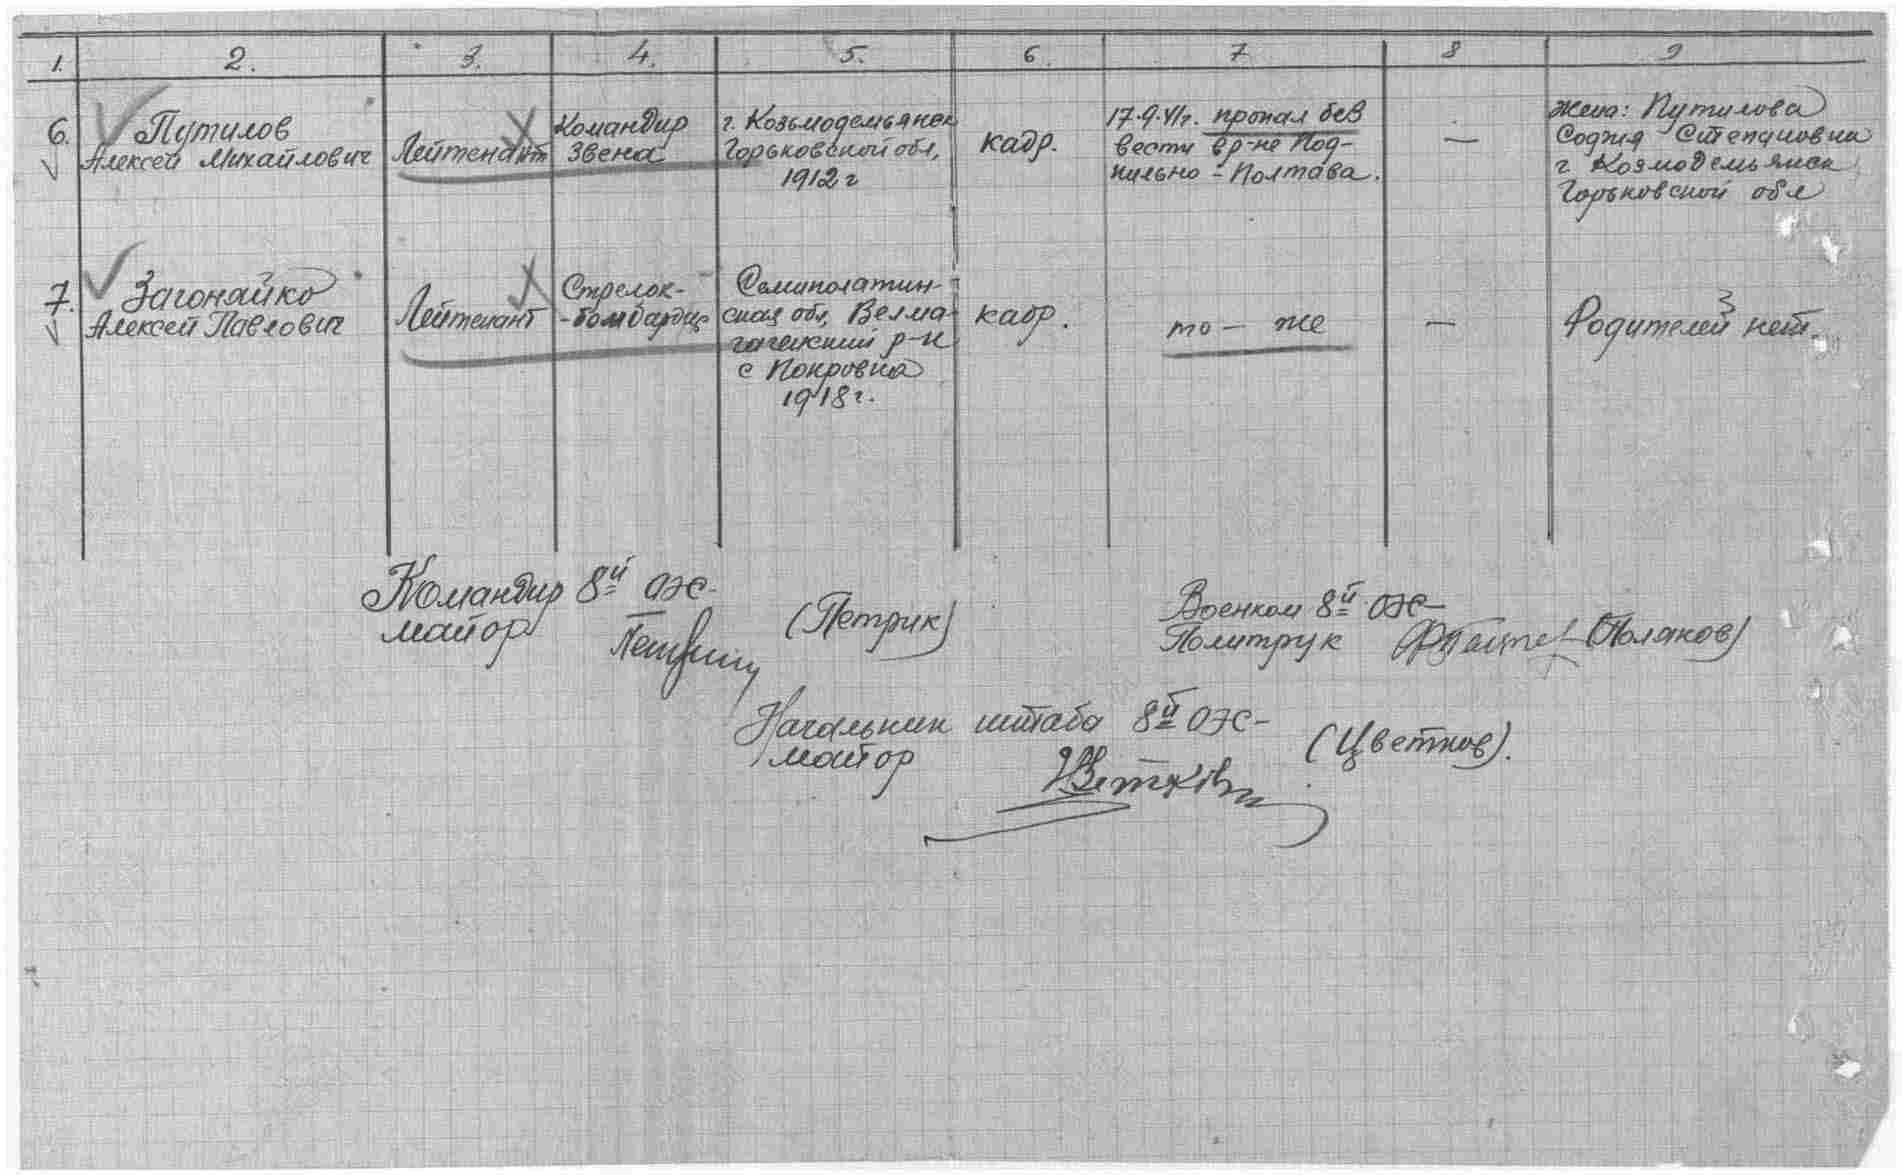 1. 2. 3. 4. 5. 6. 7 8 9
6. Путилов
Алексей Михайлович
Лейтенант
Командир
звена
г. Козьмодемьянск
Горьковской обл,
1912 г
кадр.
17.9.41г. пропал без
вести в р-не Под-
пильно - Полтава.
—
жена: Путилова
София Степановна
г Козмодемьянск
Горьковской обл
7. Загонайко
Алексей Павлович
Лейтенант
Стрелок-
-бомбардир
Семипалатин-
ская обл,
р-н
с Покровка
1918г.
кадр.
то - же
—
Родителей нет.
Командир 8й ОЭС-
майор
(Петрик)
Военком 8й ОЭС-
Политрук (Поляков)
Начальник штаба 8й ОЭС-
майор
(Цветков).